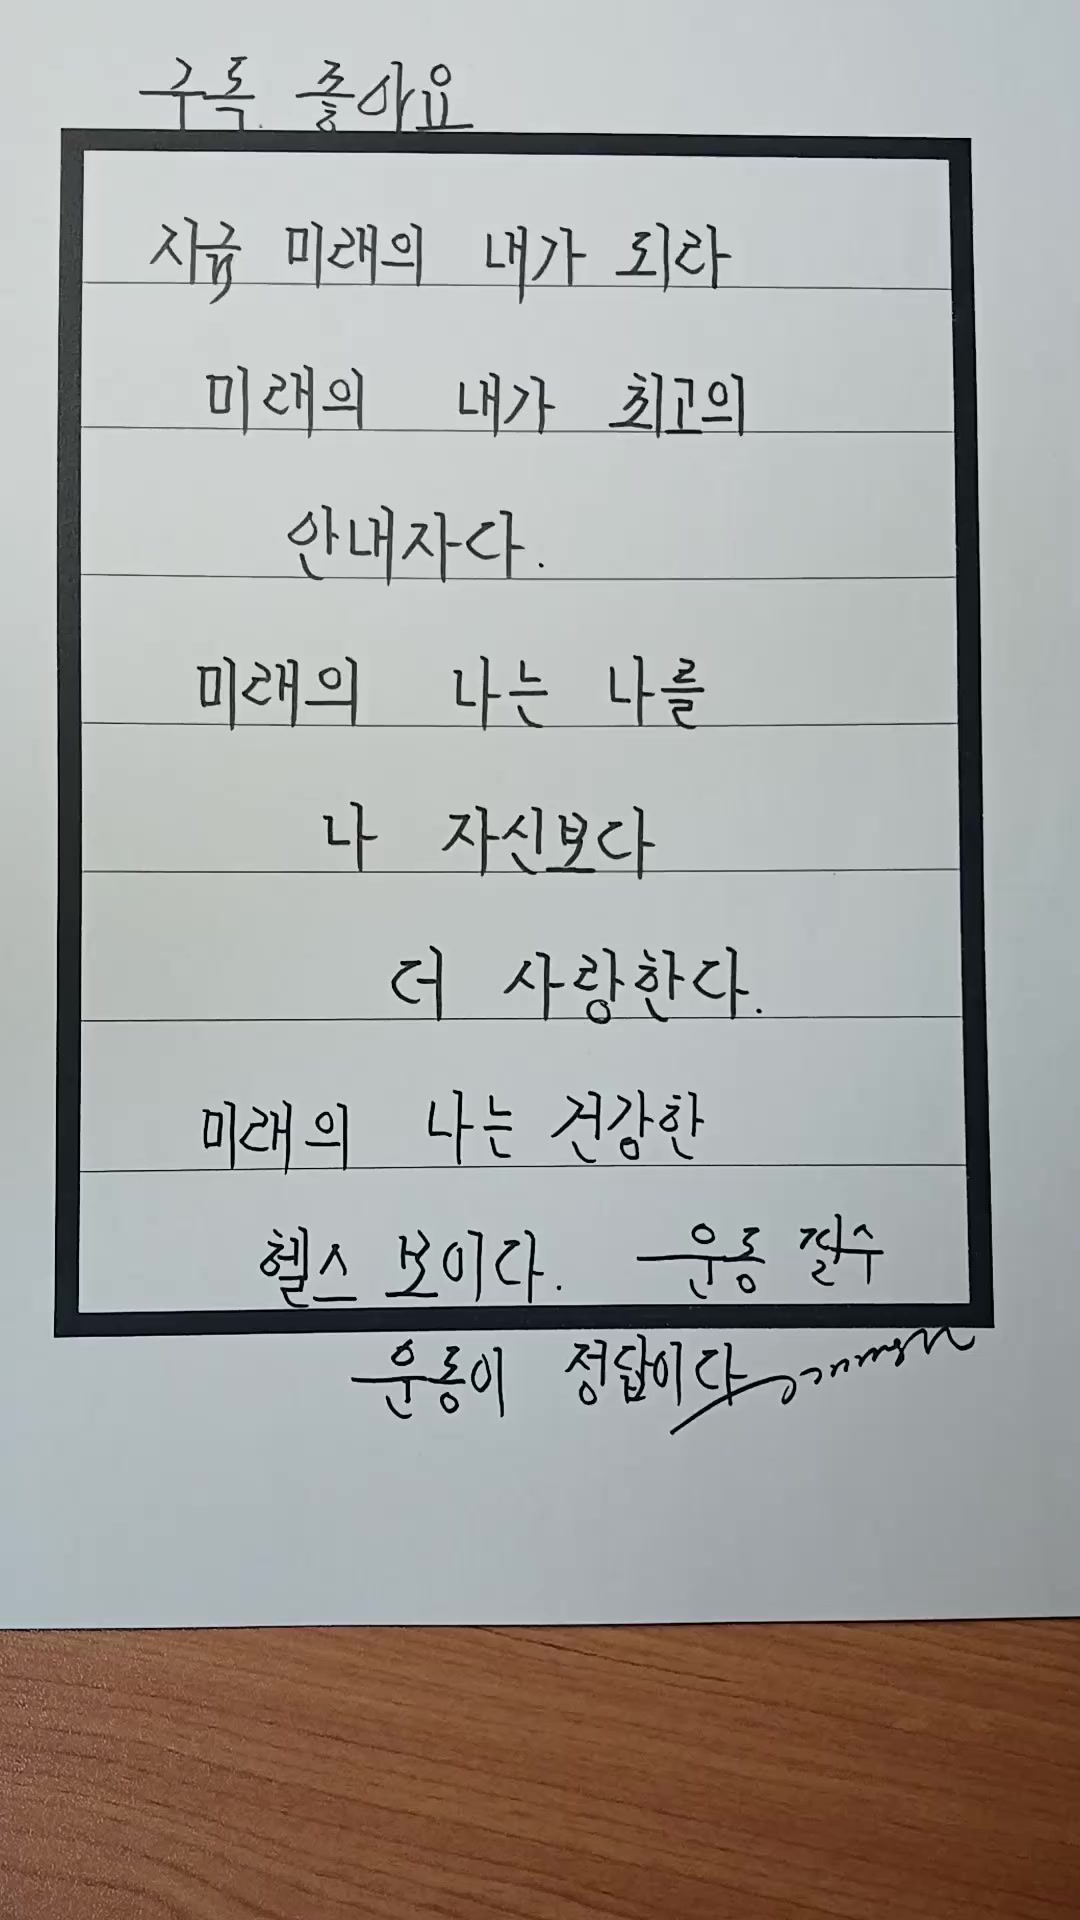 구독 좋아요
지금 미래의 내가 되라
미래의 내가 최고의
안내자다.
미래의 나는 나를
나 자신보다
더 사랑한다.
미래의 나는 건강한
헬스 보이다. 운동 필수
운동이 정답이다